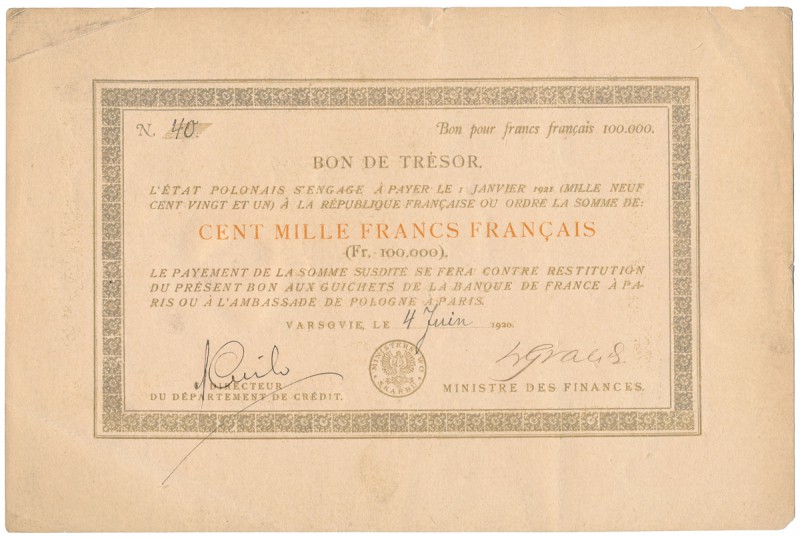 N. 40. Bon pour francs français 100.000.
BON DE TRÉSOR.
L'ÉTAT POLONAIS S'ENGAGE À PAYER LE 1 JANVIER 1921 (MILLE NEUF
CENT VINGT ET UN) À LA RÉPUBLIQUE FRANÇAISE OU ORDRE LA SOMME DE:
CENT MILLE FRANCS FRANÇAIS
(Fr. 100.000).
LE PAYEMENT DE LA SOMME SUSDITE SE FERA CONTRE RESTITUTION
DU PRÉSENT BON AUX GUICHETS DE LA BANQUE DE FRANCE À PA-
RIS OU À L'AMBASSADE DE POLOGNE À PARIS.
VARSOVIE, LE 4 Juin 1920.
MINISTERSTWO SKARBU
DIRECTEUR
DU DÉPARTEMENT DE CRÉDIT.
MINISTRE DES FINANCES.